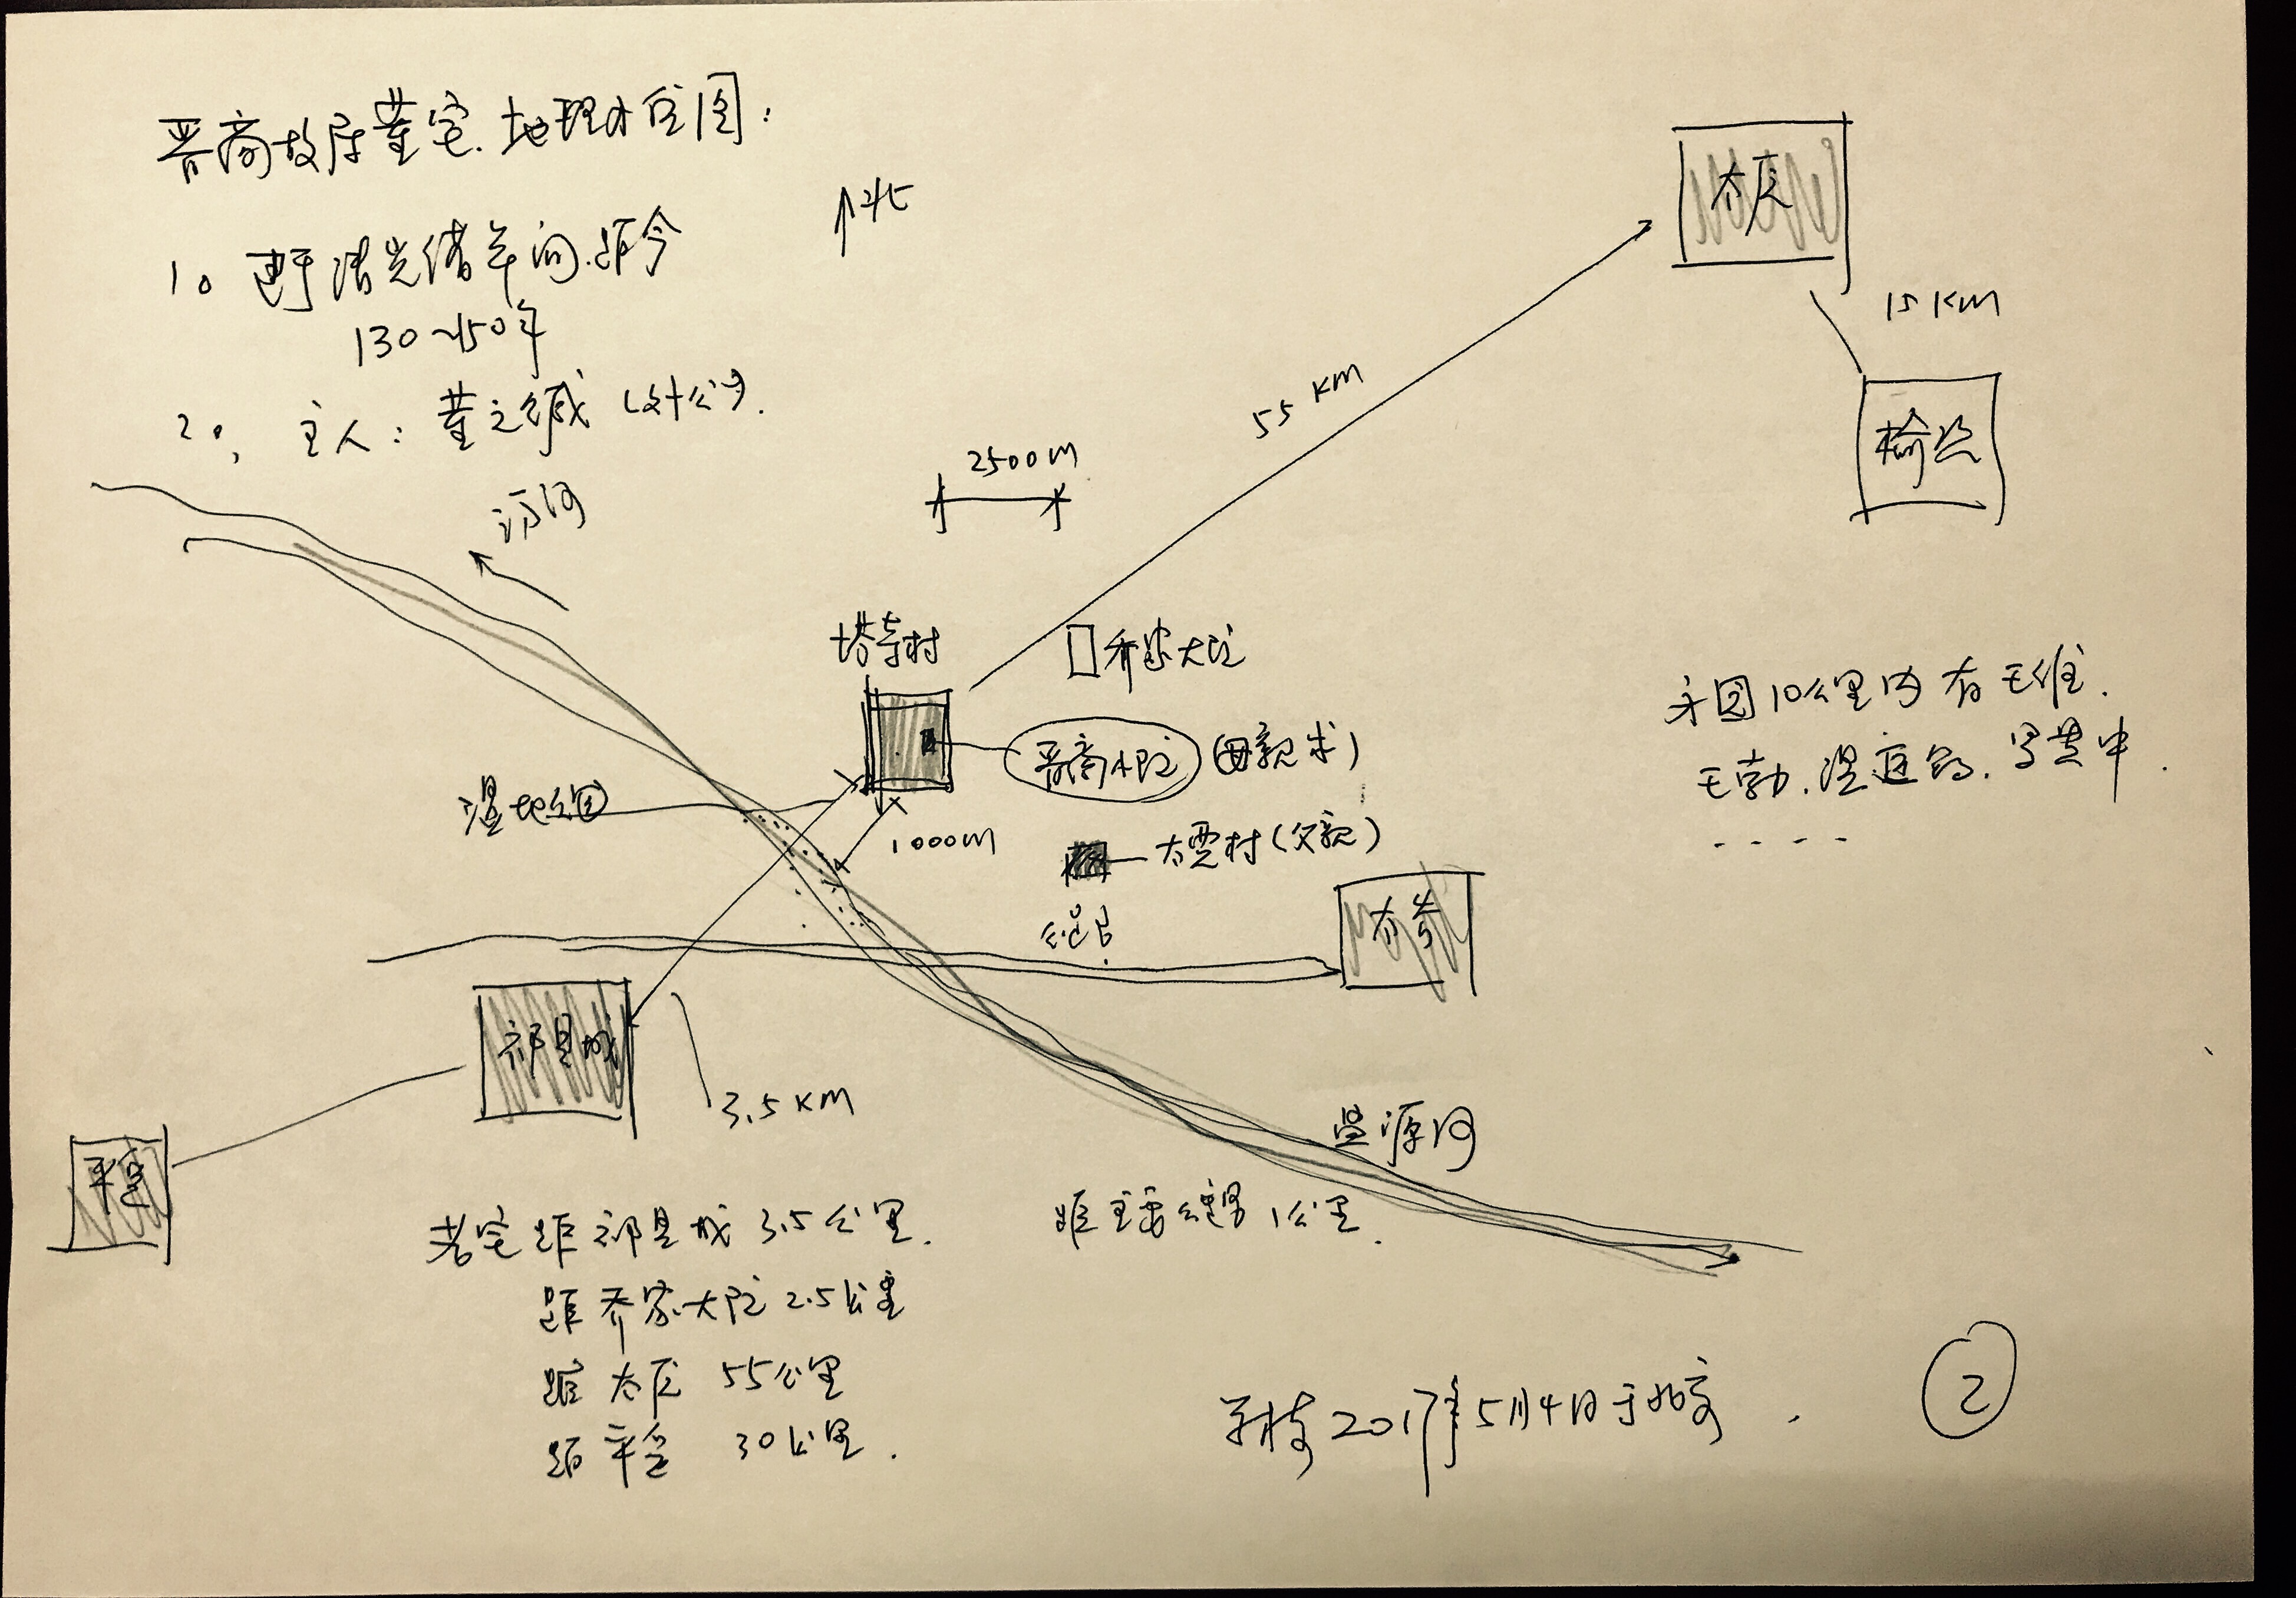 晋商故居董宅.地理位置图:
↑北
1。建于清光绪年间.距今
130~150年
2。, 主人: 董之缄
汾河
2500M
55 KM
太原
15 KM
榆次
塔寺村
乔家大院
晋商大院
(母亲
湿地公园
1000M
太贾村(父亲)
太谷
祁县城
3.5KM
平遥
昌源河
方圆10公里内有王维.
王勃.温庭筠.罗贯中.
....
老宅距祁县城 3.5公里.
距乔家大院 2.5公里
距太原 55公里
距平遥 30公里.
距 1公里.
2017年5月4日于北京.
2